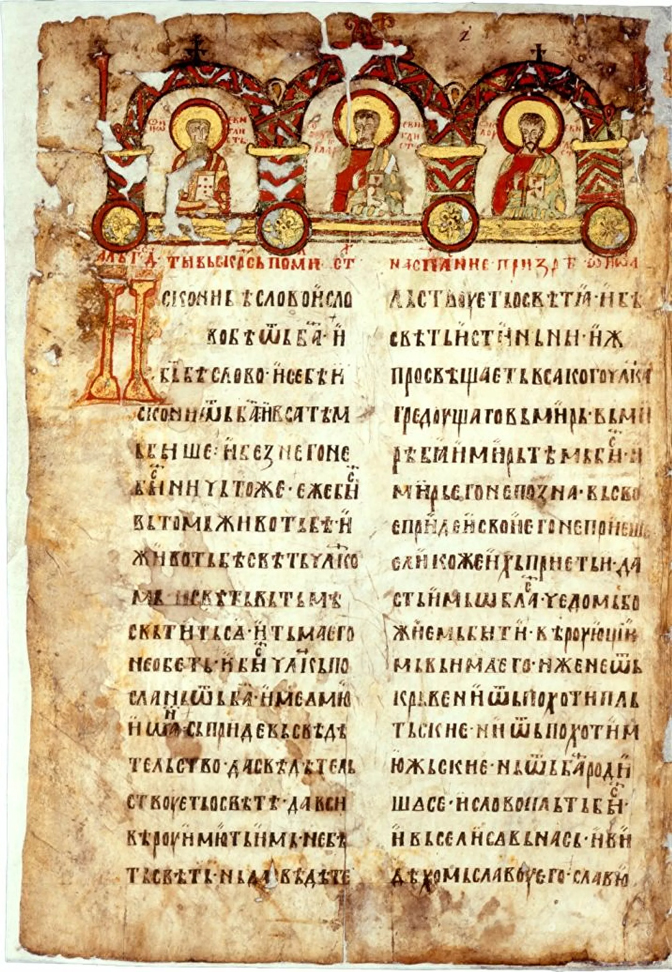 СКОНИ БѢ СЛОВО И СЛО
ВО БѢ Ѿ БА · И
БЪ БѢ СЛОВО · И СЕ БѢ И
СКОНИ Ѿ БА · И В СА ТѢМ
Ь БЫШЕ · И БЕЗ НЕГО НЕ
БЫ НИЧЬТОЖЕ · ЕЖЕ БЫ
ВЬ ТОМЬ ЖИВОТЬ БѢ · И
ЖИВОТЬ БѢ СВѢТЬ ЧЛКО
МЬ · И СВѢТЬ ВЬ ТЬМѢ
СВѢТИТЬ СА · И ТЬМА ЕГО
НЕ ОБЕТЬ · И БЫ ЧЛКЬ ПО
СЛАНЬ Ѿ БА · ИМЕ ѤМЮ
ИѠА · СЬ ПРИДЕ ВЬ СВѢДѢ
ТЕЛЬСТВО · ДА СВѢДѢТЕЛЬ
СТВОУЕТЬ О СВѢТѢ · ДА ВСИ
ВѢРОУ ИМЮТЬ ИМЬ · НЕ БѢ
ТЬ СВѢТЬ · НЬ ДА СВѢДѢТЕ
ЛЬСТВОУЕТЬ О СВѢТѢ · И БѢ
СВѢТЬ ИСТИНЬНИ · ИЖ
ПРОСВѢЩАЕТЬ ВСАКОГО ЧЛКА
ГРЕДОУЩАГО ВЬ МИРЬ · ВЬ МИ
РѢ БѢ И МИРЬ ТѢМЬ БЫ · И
МИРЬ ЕГО НЕ ПОЗНА · ВЬ СВО
Е ПРИДЕ И СВОИ ЕГО НЕ ПОИЕШЕ
ЕЛИКО ЖЕ ИХЬ ПРИЕТЬ И · ДА
СТЬ ИМЬ ѠБЛА · ЧЕДОМЬ БО
ЖИЕМЬ БЫТИ · ВѢРОУЮЩИИ
МЬ ВЬ ИМА ЕГО · ИЖЕ НЕ Ѿ
КРЬВЕ НИ Ѿ ПОХОТИ ПЛЬ
ТЬСКИЕ · НИ Ѿ ПОХОТИ М
ЮЖЬСКИЕ · НЬ Ѿ БА РОДИ
ШАСЕ · И СЛОВО ПЛЬТЬ БЫ ·
И ВЬСЕЛИ СА ВЬ НАСЬ · И ВИ
ДѢХОМЬ СЛАВОУ ЕГО · СЛАВЮ